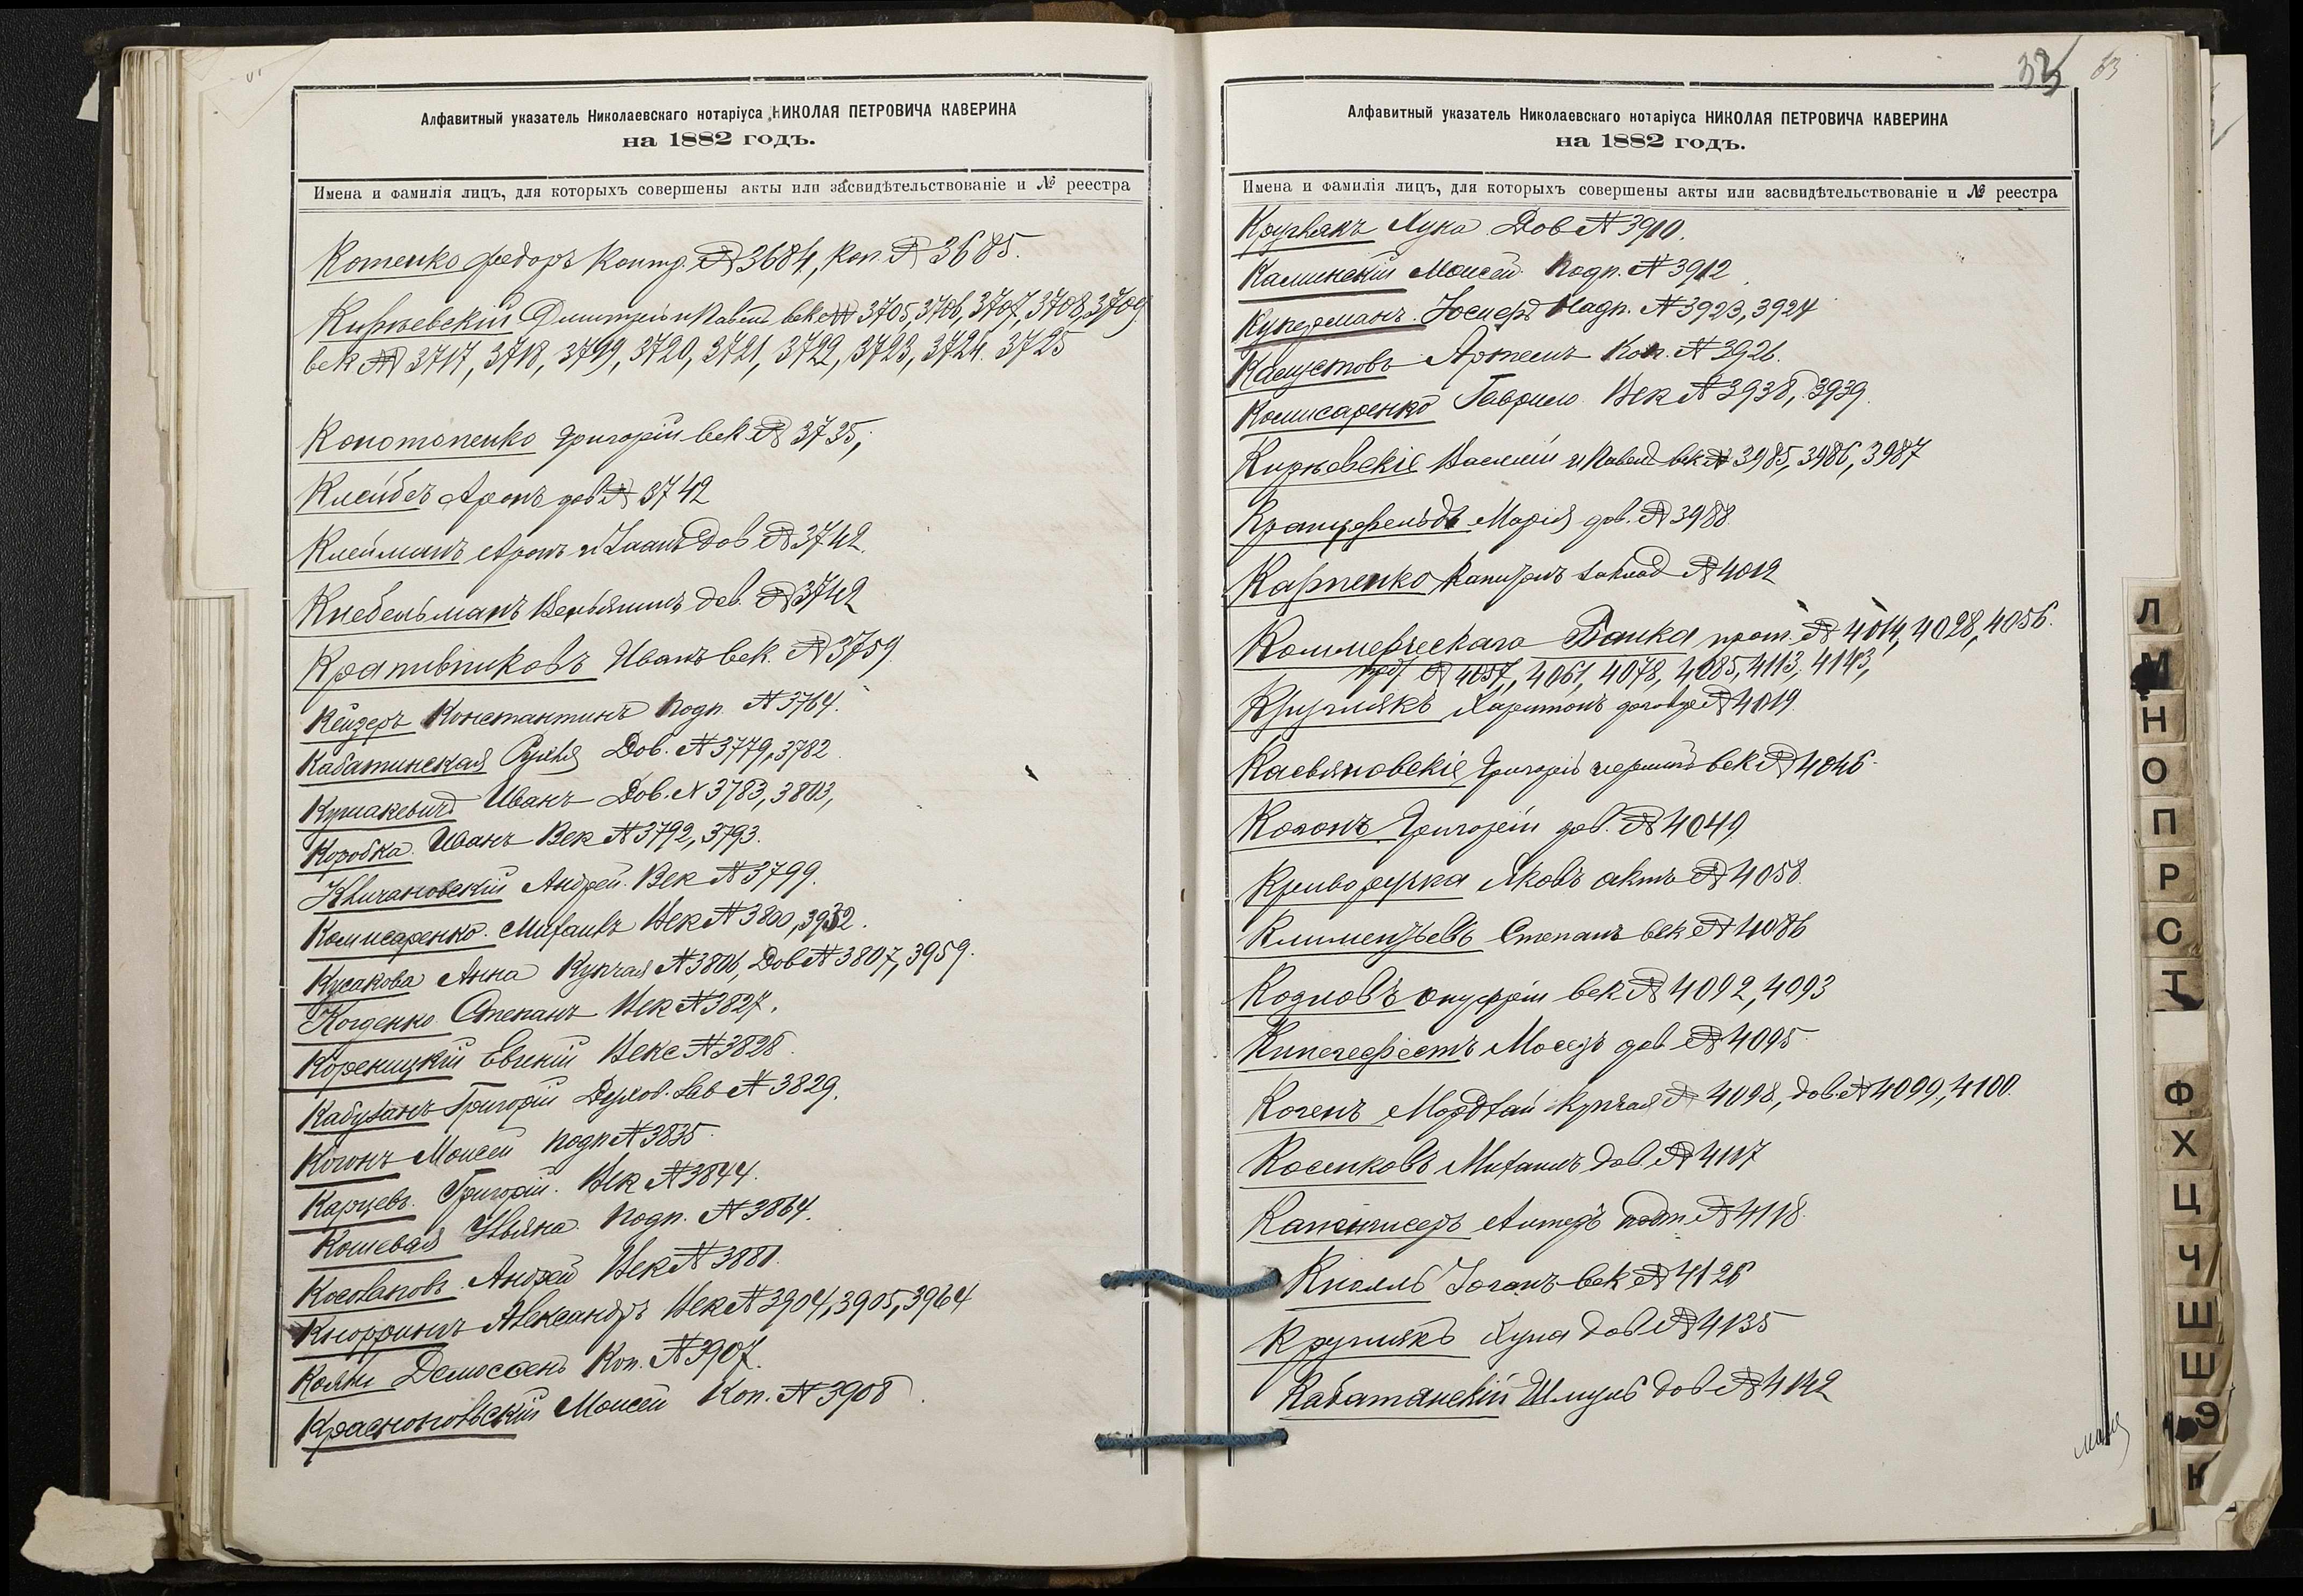 Алфавитный указатель Николаевскаго нотаріуса НИКОЛАЯ ПЕТРОВИЧА КАВЕРИНА
на 1882 годъ.
Имена и фамилія лицъ, для которыхъ совершены акты или засвидѣтельствованіе и № реестра
Котенко Федоръ Контр. № 3684, Коп. № 3685.
Киріевскій Дмитрій и Павелъ век №№ 3705, 3706, 3707, 3708, 3709
век № 3717, 3718, 3719, 3720, 3721, 3722, 3723, 3724. 3725
Конотопенко Григорій век № 3735,
Клейбеъ Аронъ дов № 3742
Клейманъ Аронъ и Исаакъ Дов № 3742.
Кнебельманъ Веньяминъ дов. № 3742
Крапивниковъ Иванъ век. № 3759.
Кейзеръ Константинъ Подп. № 3764.
Кабатинская Рухля Дов. № 3779, 3782
Иванъ Дов. № 3783, 3803,
Коробка. Иванъ Век № 3792, 3793.
Андрей. Век № 3799.
Комисаренко. Михаилъ Век № 3800, 3932.
Кусакова Анна Купчая № 3806, Дов № 3807, 3959.
Степанъ Век № 3827.
Кореницкій Евгеній Век № 3828.
Кабузанъ Григорій Духов. Зав № 3829.
Когонъ Моисей подп № 3835.
Карцевъ. Григорій. Век № 3844.
Кошевая Ульяна. Подп. № 3864.
Андрей Век № 3881.
Кноррингъ Александръ Век № 3904, 3905, 3964
Коп. № 3907.
Моисей Коп. № 3908
33 63
Алфавитный указатель Николаевскаго нотаріуса НИКОЛАЯ ПЕТРОВИЧА КАВЕРИНА
на 1882 годъ.
Имена и фамилія лицъ, для которыхъ совершены акты или засвидѣтельствованіе и № реестра
Круглякъ Лука Дов № 3910.
Каминскій Моисей Подп. № 3912
Куперманъ. Іосифъ Подп. № 3923, 3924
Капустовъ Артемъ Коп. № 3926.
Комисаренко Гаврило. Век № 3938, 3939.
Киріевскіе Василій и Павелъ век № 3985, 3986, 3987
Кранцфельдъ Марія дов. № 3988
Карпенко № 4012
Коммерческаго Банка прот. № 4014, 4028, 4056.
№ 4057, 4061, 4078, 4085, 4113, 4143,
Круглякъ Харитонъ № 4019.
Касьяновскіе Григорій век № 4046.
Когонъ Григорій дов. № 4049
Криворучка Яковъ актъ № 4058.
Климентьевъ Степанъ век № 4086
Козловъ Онуфрій век № 4092, 4093
Мосей дов № 4095
Когенъ Мордхай купчая № 4098, дов. № 4099, 4100.
Косенковъ Михаилъ дов. № 4117
№ 4118.
век № 4126
Круглякъ Лука дов № 4135
Кабатянскій Шмуль дов № 4142
Л
М
Н
О
П
Р
С
Т
Ф
Х
Ц
Ч
Ш
Э